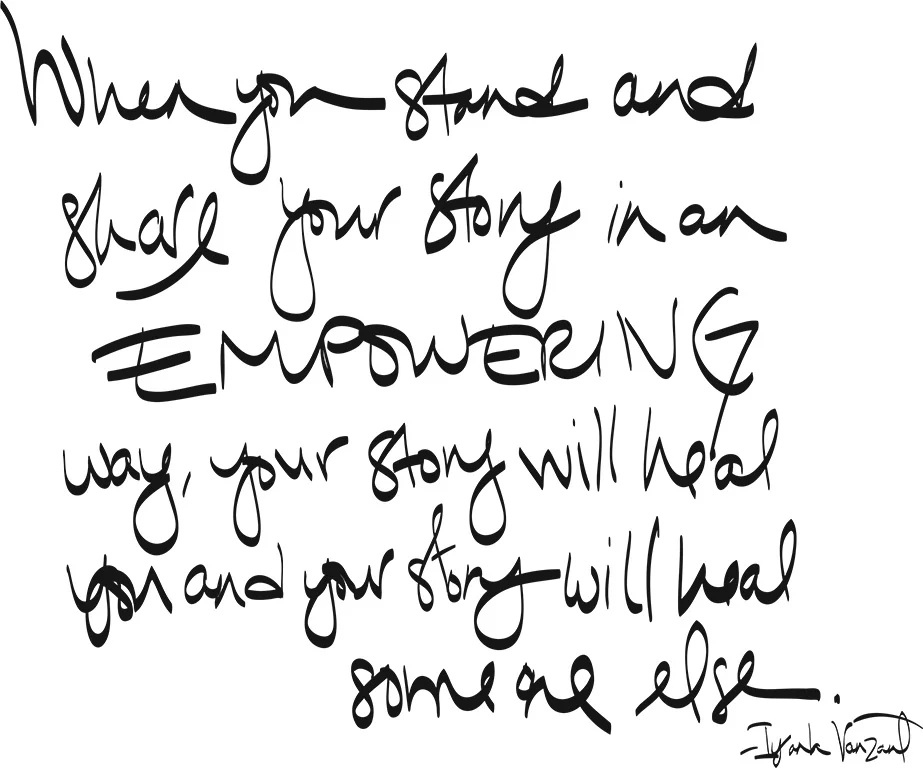 When you stand and
share your story in an
EMPOWERING
way, your story will heal
you and your story will heal
someone else.
- Iyanla Vanzant